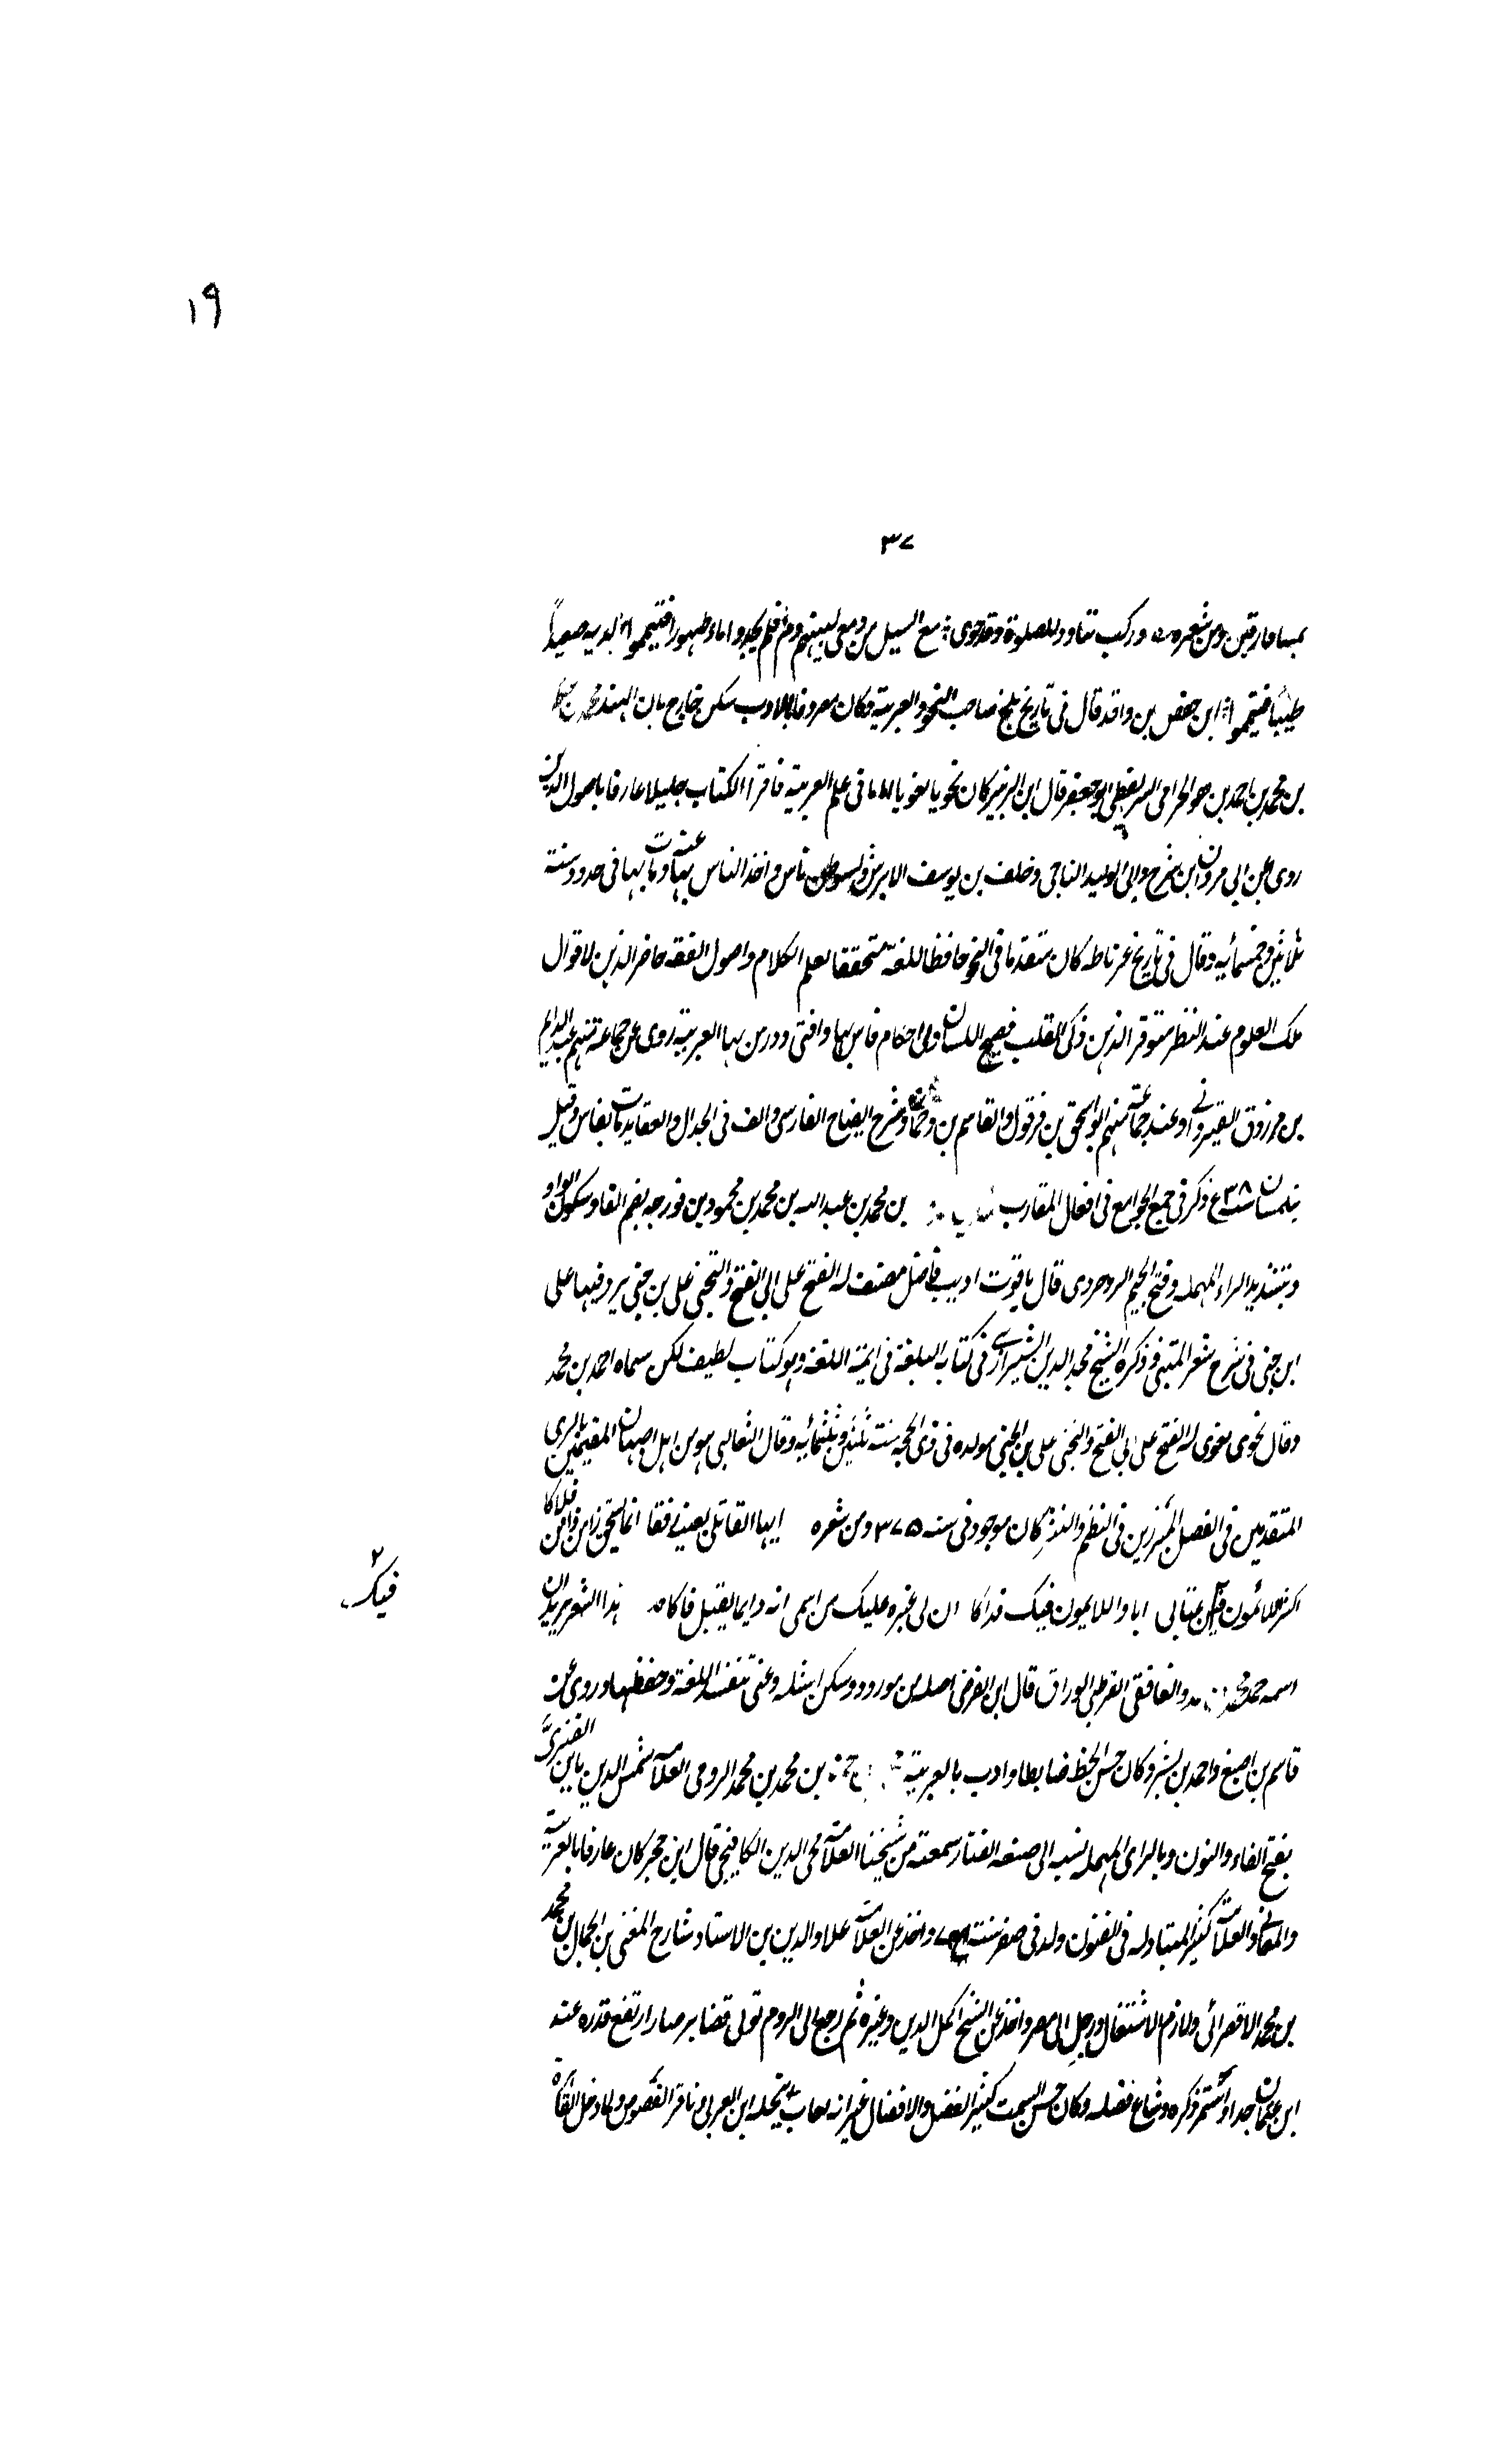 ١٩
٣٧
بميافارقين ومن شعره وركب تنادوا للصلوة وقد جرى مع السيل من دمعى لبينهم دم فلم يجدوا ماء طهورا فتيمموا لديه صعيداً
طيبا فتيمموا ابن حفص بن واقد قال فى تاريخ بلخ صاحب النحو والعربية وكان معروفا بالادب سكن خارج باب الهند محمد بن حكم
بن محمد بن احمد بن الجذامى السرقسطى ابو جعفر قال ابن الزبير كان نحويا لغويا اماما فى علم العربية فاقرأ الكتاب جليلا عارفا باصول الدين
روى عن ابى مروان ابن سرج وابى الوليد الباجى وخلف بن يوسف الابرش واستوطن فاس واخذ الناس عنه بها ومات بها فى حدود سنة
ثلاثين وخمسمائه وقال فى تاريخ غرناطه كان متقدما فى النحو حافظا للغة متحققا بعلم الكلام واصول الفقه حاضر الذهن لاقوال
تلك العلوم عند النظر متوقد الذهن ذكى القلب فصيح اللسان ولى احكام فاس بها وافتى ودرس بها العربية روى عن جماعة منهم عبد الدايم
بن مرزوق القيروانى وعنه جماعة منهم ابو اسحق بن قرقول والقاسم بن دحمان وشرح ايضاح الفارسى والف فى الجدل والعقايد مات بفاس وقيل
بتلمسان سنة ٥٣٨ ذكر فى جمع الجوامع فى افعال المقارب بن محمد بن عبد الله بن محمد بن محمود بن فورجه بضم الفا وسكون الواو
وبتشديد الراء المهمله وفتح الجيم البروجردى قال ياقوت اديب فاضل مصنف له الفتح على ابى الفتح والتجنى على بن جنى يرد فيها على
ابن جنى فى شرح شعر المتنبى وذكره الشيخ مجد الدين الشيرازى فى كتابه البلغة فى ايمة اللغة وهو كتاب لطيف لكن سماه احمد بن محمد
وقال نحوى لغوى له الفتح على ابى الفتح والتجنى على بن الجنى مولده فى ذى الحجه سنة ثلثين وثلثمائه وقال الثعالبى هو من اهل اصبهان المقيمين بالرى
المتقدمين فى الفضل المبرزين فى النظم والنثر كان موجودا فى سنه ٣٧٥ ومن شعره ايها القاتل بعينيه رفقا انما يستحق ذا من قلاكا
اكثر اللائمون فيك عتابى انا واللايمون فيك فداكا ان لى غيرة عليك من اسمى انه دايما يقبل فاكا هذا الشعر يريد ان
فيك
اسمه حمد محمد بن حمدون الغافقى القرطبى الوراق قال ابن الفرضى اصله من مورور وسكن وعنى بنفسه اللغة وحفظها وروى عن
قاسم بن اصبغ واحمد بن بشر وكان حسن الخط ضابطا وادب بالعربية محمد بن حمزه بن محمد بن محمد الرومى العلامة شمس الدين بابن الفنرى
بفتح الفاء والنون وبالراى المهمله نسبه الى صنعه الفنار سمعته من شيخنا العلامة محى الدين الكافيجى قال ابن حجر كان عارفا بالعربية
والمعانى والعلامة كثير المشاركه فى الفنون ولد فى صفر سنة ٧٥١ واخذ عن العلامة علاو الدين بن الاستاد شارح المغنى بن الجمال بن محمد
بن محمد الاقصرائى ولازم الاشتغال ورحل الى مصر واخذ عن الشيخ اكمل الدين وغيره ثم رجع الى الروم تولى قضا برصا وارتفع قدره عند
ابن عثمان جدا واشتهر ذكره وشاع فضله وكان حسن السمت كثير الفضل والافضال غير انه يعاب بنحلة ابن العربى وباقراء الفصوص ولما دخل القاهرة